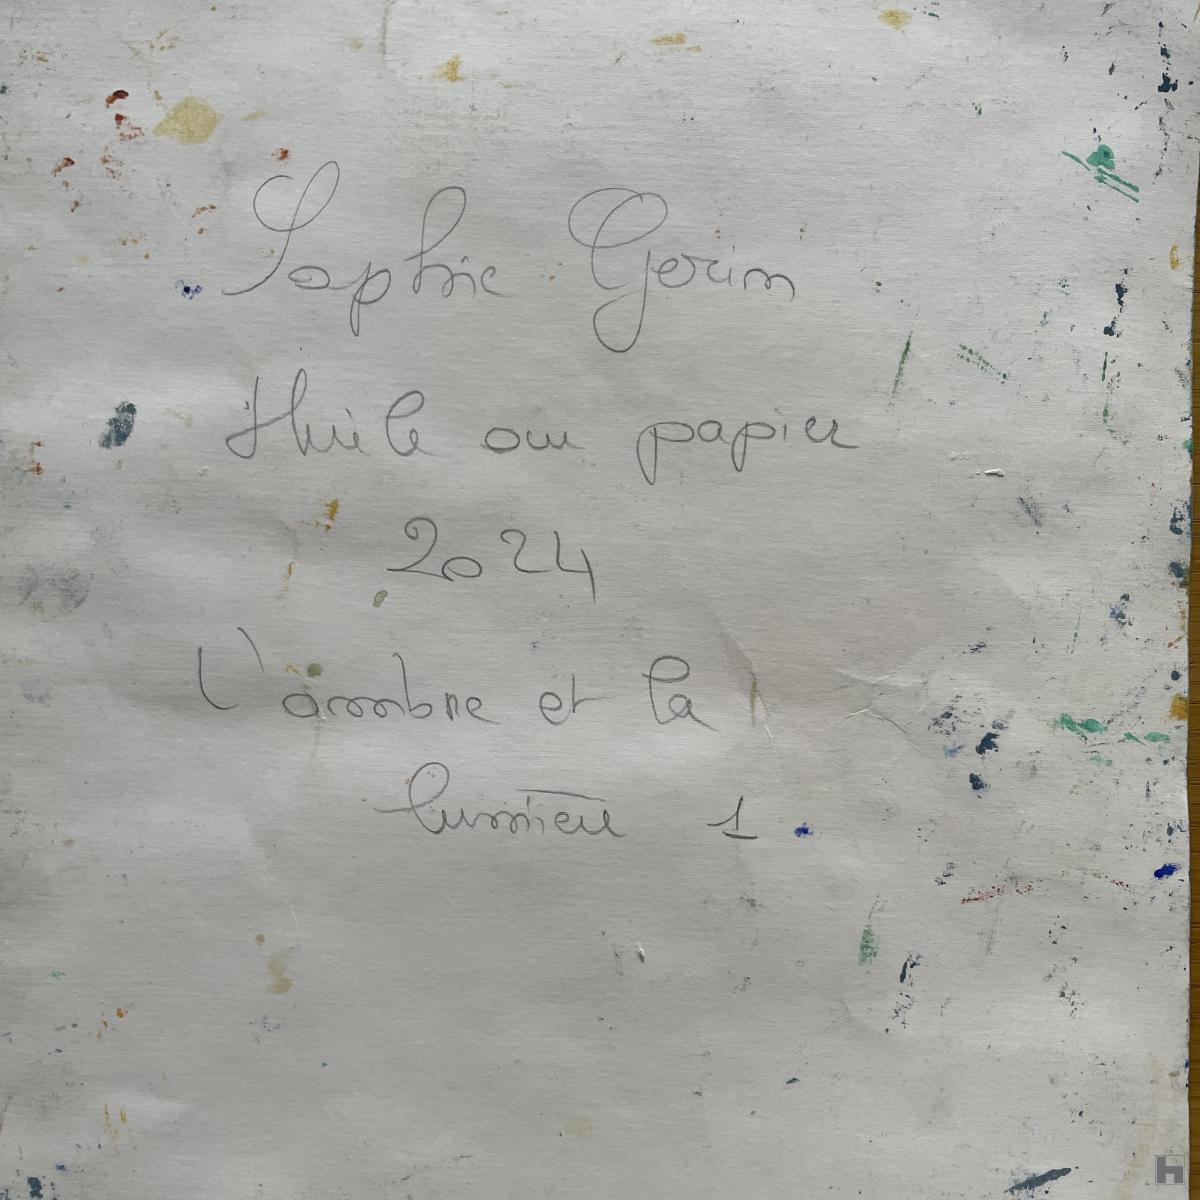 Sophie Gerin
Huile sur papier
2024
L'ombre et la
lumière 1
h